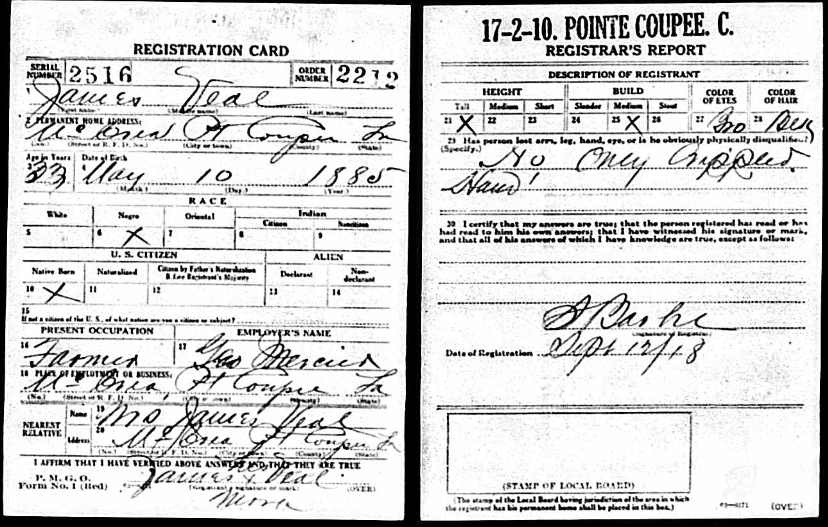 REGISTRATION CARD
SERIAL NUMBER 2516 ORDER NUMBER 2212
James Veal
(First name) (Middle name) (Last name)
2 PERMANENT HOME ADDRESS:
McCrea Pt Coupee La
(No.) (Street or R. F. D. No.) (City or town) (County) (State)
Age in Years Date of Birth
33 May 10 1885
(Month.) (Day.) (Year.)
RACE
White Negro Oriental Indian
Citizen Noncitizen
5 6 X 7 8 9
U. S. CITIZEN ALIEN
Native Born Naturalized Citizen by Father's Naturalization Before Registrant's Majority Declarant Non-declarant
10 X 11 12 13 14
15
If not a citizen of the U. S., of what nation are you a citizen or subject?
PRESENT OCCUPATION EMPLOYER'S NAME
16 Farmer 17 Geo Mercier
18 PLACE OF EMPLOYMENT OR BUSINESS:
McCrea, Pt Coupee La
(No.) (Street or R. F. D. No.) (City or town) (County) (State)
NEAREST RELATIVE Name 19 Mrs James Veal
Address 20 McCrea Pt Coupee La
(No.) (Street or R. F. D. No.) (City or town) (County) (State)
I AFFIRM THAT I HAVE VERIFIED ABOVE ANSWERS AND THAT THEY ARE TRUE
P. M. G. O.
Form No. 1 (Red) James x Veal
(Registrant's signature or mark) (OVER)
17-2-10. POINTE COUPEE. C.
REGISTRAR'S REPORT
DESCRIPTION OF REGISTRANT
HEIGHT BUILD COLOR OF EYES COLOR OF HAIR
Tall Medium Short Slender Medium Stout
21 X 22 23 24 25 X 26 27 Bro 28 Blk
29 Has person lost arm, leg, hand, eye, or is he obviously physically disqualified?
(Specify.) No, Only Crippled
Hand
30 I certify that my answers are true; that the person registered has read or has
had read to him his own answers; that I have witnessed his signature or mark,
and that all of his answers of which I have knowledge are true, except as follows:
(Signature of Registrar)
Date of Registration Sept 12/18
(STAMP OF LOCAL BOARD)
(The stamp of the Local Board having jurisdiction of the area in which
the registrant has his permanent home shall be placed in this box.)
(OVER)